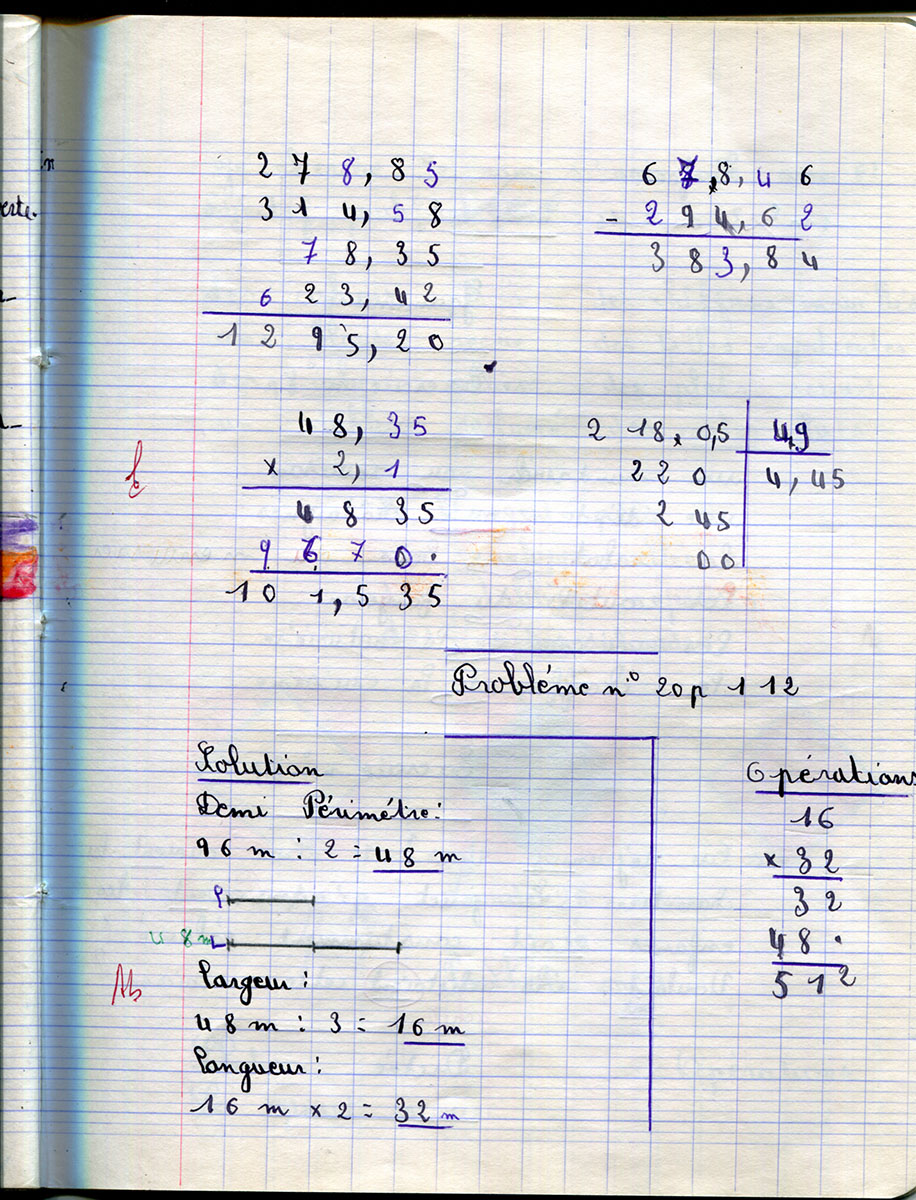 in
erte.
278,85
314,58
78,35
623,42
1295,20
678,46
- 294,62
383,84
48,35
× 2,1
4835
9670.
101,535
218,0,5 4,9
220 4,45
245
00
Probléme n° 20p 112
Solution
Demi Périmétre:
96 m : 2 = 48 m
l
48m L
largeur :
48 m : 3 = 16 m
longueur :
16 m × 2 = 32 m
Opérations
16
× 32
32
48.
512